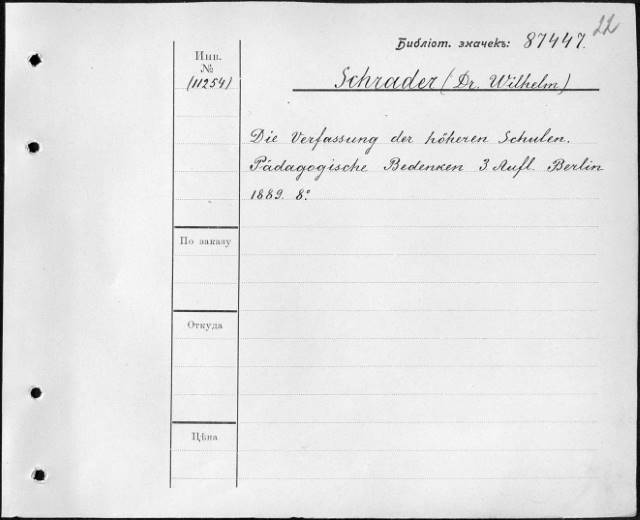 22
Библіот. значекъ: 87447.
Инв.
№
(11254)
Schrader (Dr. Wilhelm)
Die Verfassung der höheren Schulen.
Pädagogische Bedenken 3 Aufl. Berlin
1889. 8º
По заказу
Откуда
Цѣна